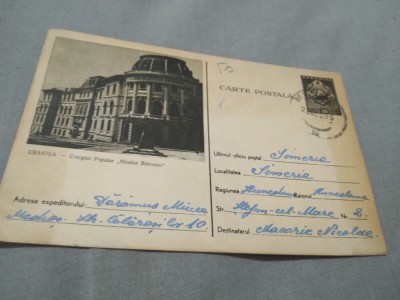 CARTE POSTALA
CRAIOVA — Colegiul Popular „Nicolae Bălcescu”
Ultimul oficiu poștal Simeria
Localitatea Simeria
Regiunea Hunedoara Raionul Hunedoara
Str. Ștefan-cel-Mare Nr. 2.
Destinatarul Macarie Nicolae.
Adresa expeditorului: Dărămuș Mircea
Mediaș. Str. Călărași Nr 10.